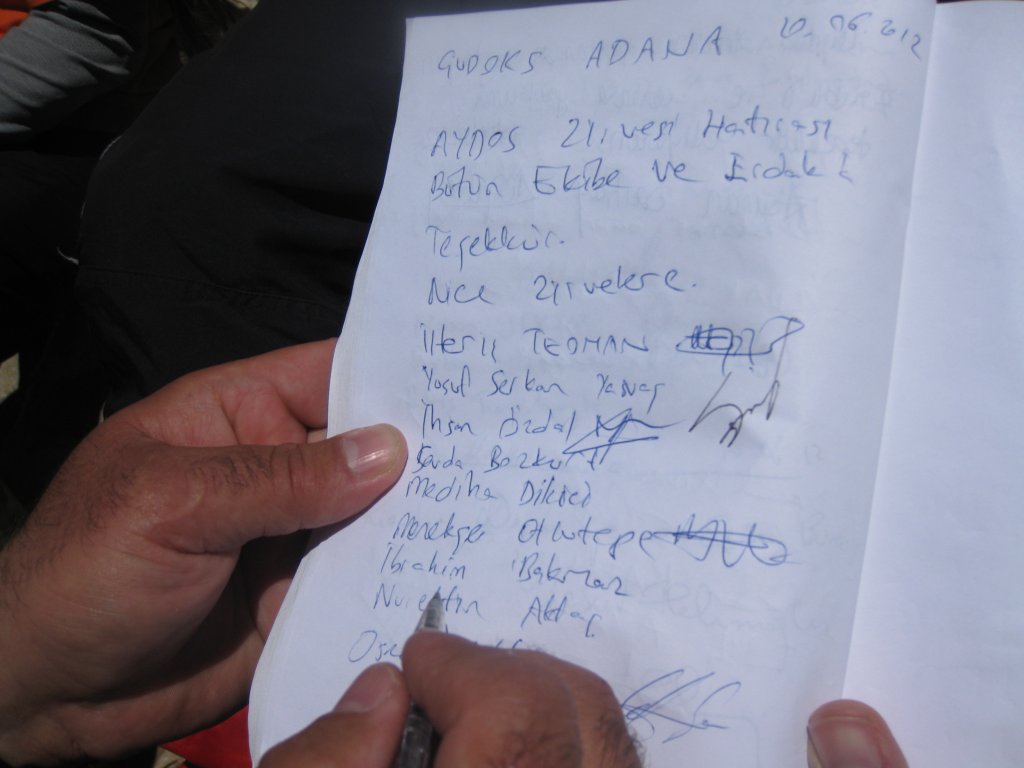 GUDOKS ADANA 10.06.2012
AYDOS Zirvesi Hatırası
Bütün Ekibe ve
Teşekkür.
Nice Zirvelere.
İlteriş TEOMAN
Yusuf Serkan
İhsan Özdal
Sevda Bozkurt
Mediha Dikici
Menekşe Otlutepe
İbrahim Bakmaz
Nurettin Aktaş